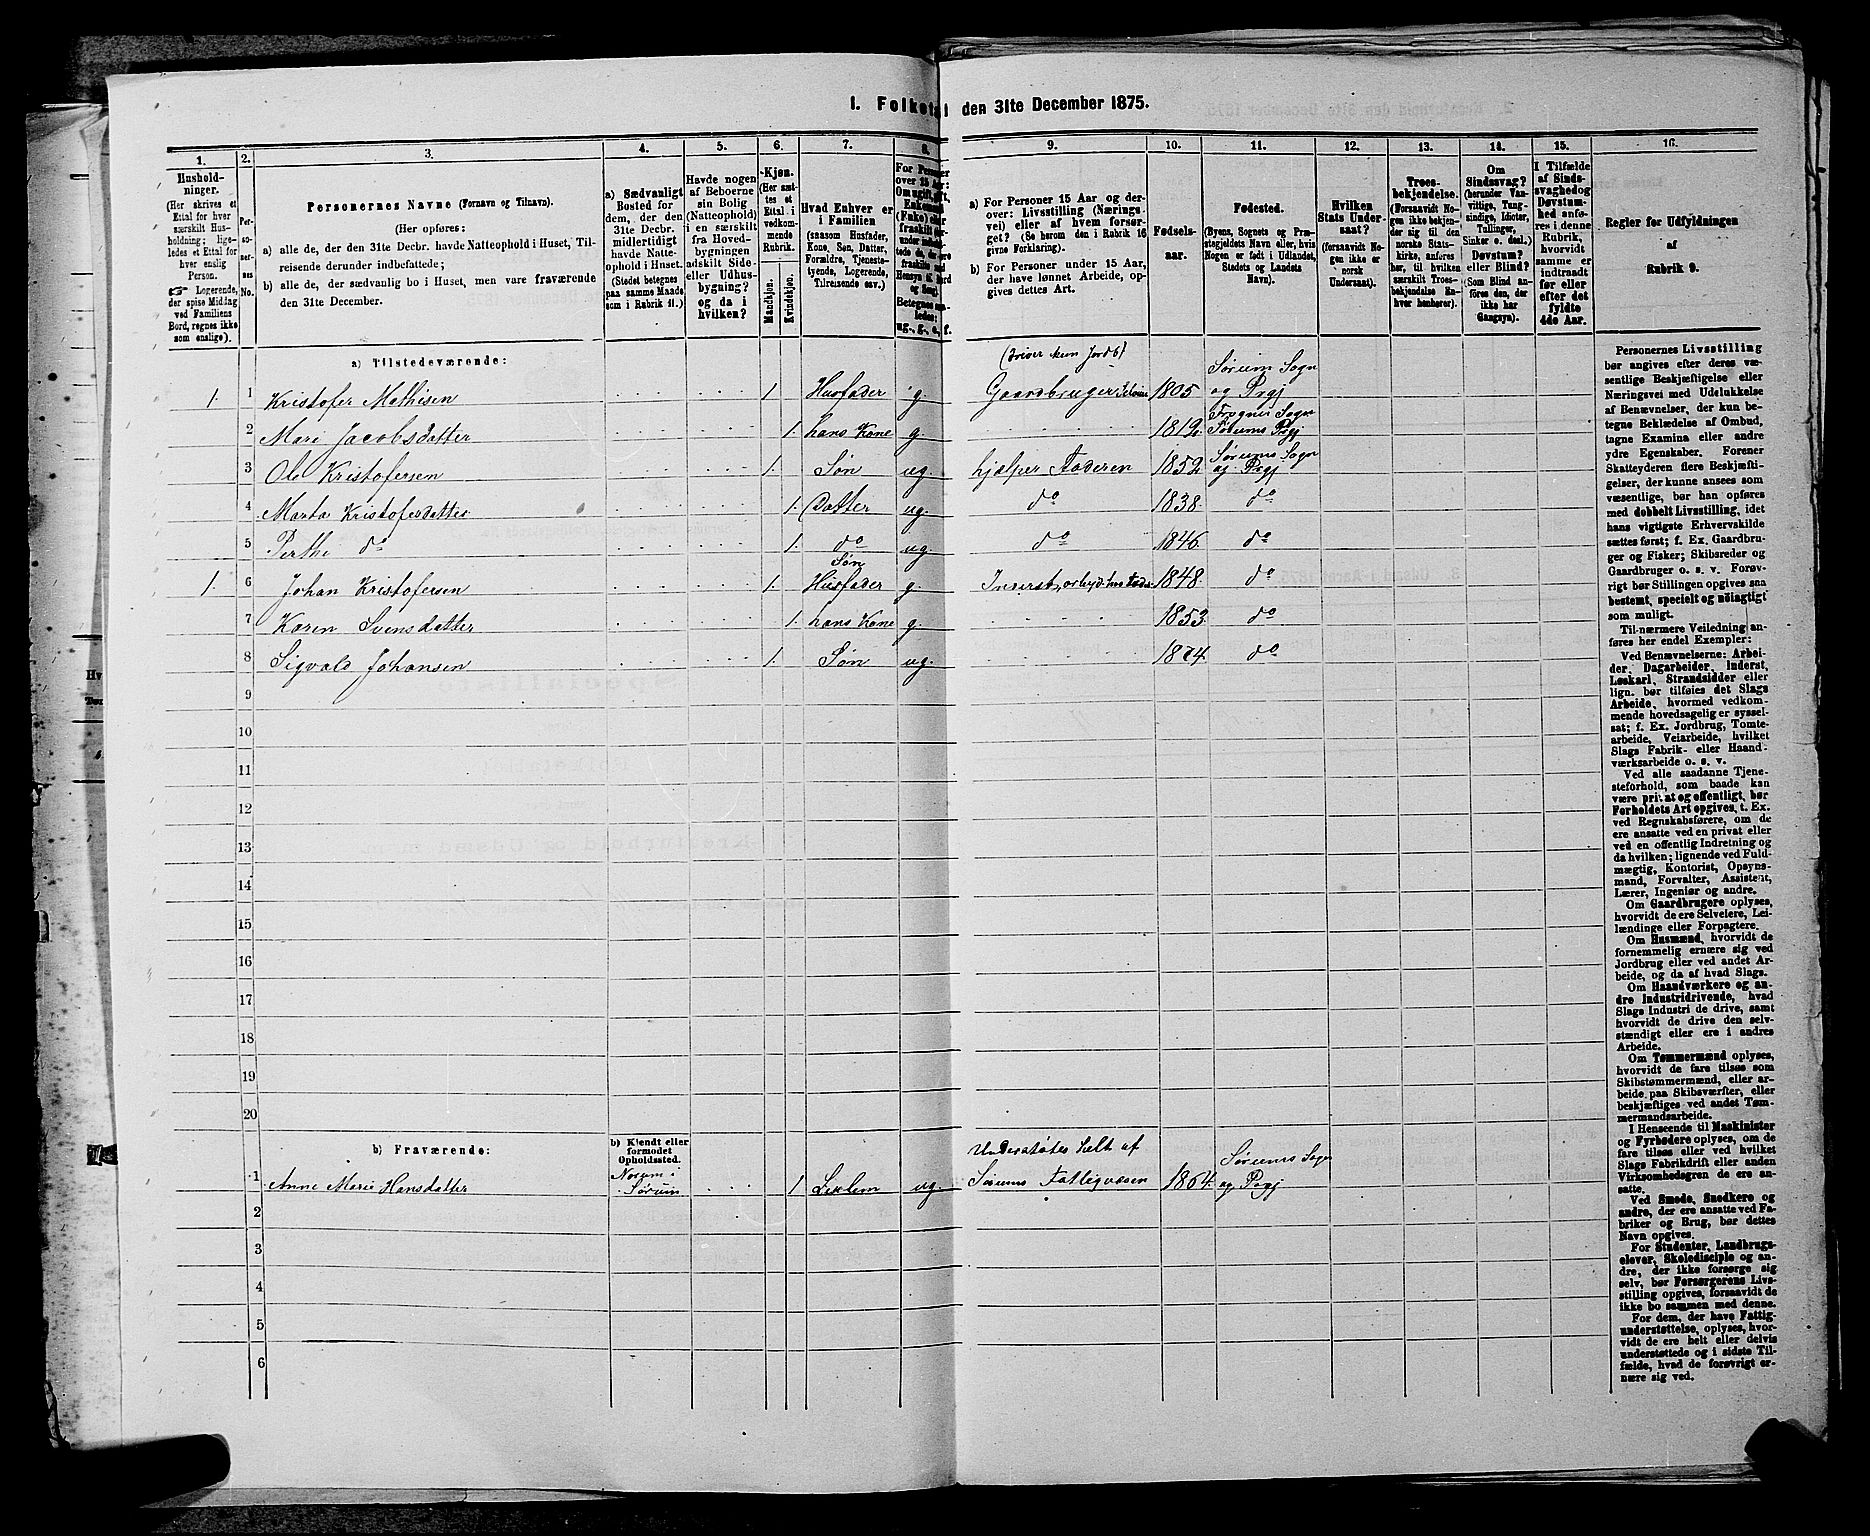 1. Folketal den 31te December 1875.
1.
Hushold-
ninger.
(Her skrives et
Ettal for hver
særskilt Hus-
holdning; lige-
ledes et Ettal for
hver enslig
Person.
☛ Logerende,
der spise Middag
ved Familiens
Bord, regnes ikke
som enslige).
2.
Per-
so-
ner-
nes
No.
3.
Personernes Navne (Fornavn og Tilnavn).
(Her opføres:
a) alle de, der den 31te Decbr. havde Natteophold i Huset, Til-
reisende derunder indbefattede;
b) alle de, der sædvanlig bo i Huset, men vare fraværende
den 31te December.
4.
a) Sædvanligt
Bosted for
dem, der den
31te Decbr.
midlertidigt
havde Natte-
ophold i Huset.
(Stedet betegnes
paa samme Maade
som i Rubrik 11.)
5.
Havde nogen
af Beboerne
sin Bolig
(Natteophold)
i en særskilt
fra Hoved-
bygningen
adskilt Side-
eller Udhus-
bygning?
og da i
hvilken?
6.
Kjøn.
(Her sæt-
tes et
Ettal i
vedkom-
mende
Rubrik.
Mandkjøn.
Kvindekjøn.
7.
Hvad Enhver er
i Familien
(saasom Husfader,
Kone, Søn, Datter,
Forældre, Tjeneste-
tyende, Logerende,
Tilreisende osv.).
8.
For Personer
over 15 Aar:
Om ugift, gift,
Enkemand
(Enke) eller
fraskilt
9.
a) For Personer 15 Aar og der-
over: Livsstilling (Nærings-
vei) eller af hvem forsør-
get? (Se herom den i Rubrik 16
givne Forklaring).
b) For Personer under 15 Aar,
der have lønnet Arbeide, op-
gives dettes Art.
10.
Fødsels-
aar.
11.
Fødested.
(Byens, Sognets og Præ-
stegjeldets Navn eller, hvis
Nogen er født i Udlandet,
Stedets og Landets
Navn).
12.
Hvilken
Stats Under-
saat?
(forsaavidt No-
gen ikke er
norsk
Undersaat).
13.
Troes-
bekjendelse.
(Forsaavidt No-
gen ikke bekjen-
der sig til den
norske Stats-
kirke, anføres
her, til hvilken
særskilt Troes-
bekjendelse En-
hver henhører).
14.
Om
Sindssvag?
(herunder Van-
vittige, Tung-
sindige, Idioter,
Tullinger,
Sinker o. desl.)
Døvstum?
eller Blind?
(Som Blind an-
føres den, der
ikke har
Gangsyn).
15.
I Tilfælde
af Sinds-
svaghed og
Døvstum-
hed anfø-
res i denne
Rubrik,
hvorvidt
samme er
indtraadt
før eller
efter det
fyldte
4de Aar.
16.
Regler for Udfyldningen
af
Rubrik 9.
a) Tilstedeværende:
(driver kun Jordb)
1. 1 Kristofer Mathisen 1 Husfader g. Gaardbruger Selveier 1805 Sørum Sogn og Prgj
2 Mari Jacobsdatter 1. hans Kone g. 1819 Frogner Sogn Sørums Prgj
3 Ole Kristofersen 1. Søn ug. hjælper Faderen 1852 Sørums Sogn og Prgj
4 Marta Kristofersdatter 1. Datter ug. do 1838. do
5 Perthe do 1. do ug do 1846. do
Søn
1. 6 Johan Kristofersen 1. Husfader g. Inderst, 1848. do
7 Karen Svensdatter 1. hans Kone g. 1853. do
8 Sigvald Johansen 1. Søn ug. 1874. do
9
10
11
12
13
14
15
16
17
18
19
20
b) Fraværende:
b) Kjendt eller
formodet
Opholdssted.
Understøttes helt af
1 Anne Marie Hansdatter Norum i Sørum 1 Leglem ug. Sørums Fattigvæsen 1864. Sørums Sogn og Prgj
2
3
4
5
6
Personernes Livsstilling
bør angives efter deres væ-
sentlige Beskjæftigelse eller
Næringsvei med Udelukkelse
af Benævnelser, der kun be-
tegne Beklædelse af Ombud,
tagne Examina eller andre
ydre Egenskaber. Forener
Skatteyderen flere Beskjæfti-
gelser, der kunne ansees som
væsentlige, bør han opføres
med dobbelt Livsstilling, idet
hans vigtigste Erhvervskilde
sættes først; f. Ex. Gaardbru-
ger og Fisker; Skibsreder og
Gaardbruger o. s. v. Forøv-
rigt bør Stillingen opgives saa
bestemt, specielt og nøiagtigt
som muligt.
Til nærmere Veiledning an-
føres her endel Exempler:
Ved Benævnelserne: Arbei-
der, Dagarbeider, Inderst,
Løskarl, Strandsidder eller
lign. bør tilføies det Slags
Arbeide, hvormed vedkom-
mende hovedsagelig er syssel-
sat; f. Ex. Jordbrug, Tomte-
arbeide, Veiarbeide, hvilket
Slags Fabrik- eller Haand-
værksarbeide o. s. v.
Ved alle saadanne Tjene-
steforhold, som baade kan
være privat og offentligt, bør
Forholdets Art opgives, t. Ex.
ved Regnskabsførere, om de
ere ansatte ved en privat eller
ved en offentlig Indretning og
da hvilken; lignende ved Fuld-
mægtig, Kontorist, Opsyns-
mand, Forvalter, Assistent,
Lærer, Ingeniør og andre.
Om Gaardbrugere oplyses,
hvorvidt de ere Selveiere, Lei-
lændinge eller Forpagtere.
Om Husmænd, hvorvidt de
fornemmelig ernære sig ved
Jordbrug eller ved andet Ar-
beide, og da af hvad Slags.
Om Haandværkere og an-
dre Industridrivende, hvad
Slags Industri de drive, samt
hvorvidt de drive den selv-
stændigt eller ere i andres
Arbeide.
Om Tømmermænd oplyses,
hvorvidt de fare tilsøs som
Skibstømmermænd, eller ar-
beide paa Skibsværfter, eller
beskjæftiges ved andet Tøm-
mermandsarbeide.
I Henseende til Maskinister
og Fyrbødere oplyses, om de
fare tilsøs eller ved hvilket
Slags Fabrikdrift eller anden
Virksomhedsgren de ere an-
satte.
Ved Smede, Snedkere og
andre, der ere ansatte ved Fa-
briker og Brug, bør dettes
Navn opgives.
For Studenter, Landbrugs-
elever, Skoledisciple og an-
dre, der ikke forsørge sig
selv, bør Forsørgerens Livs-
stilling opgives, forsaavidt de
ikke bo sammen med denne.
For dem, der have Fattig-
understøttelse, oplyses, hvor-
vidt de ere helt eller delvis
understøttede og i sidste Til-
fælde, hvad de forøvrigt er-
nære sig ved.